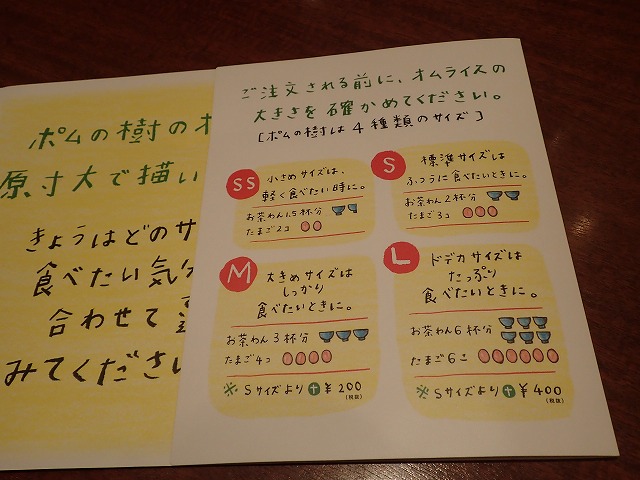 ポムの樹のオ
原寸大で描い
きょうはどのサ
食べたい気分
合わせて
みてください
ご注文される前に、オムライスの
大きさを確かめてください。
[ポムの樹は4種類のサイズ]
SS
小さめサイズは、
軽く食べたい時に。
お茶わん1.5杯分
たまご2コ
S
標準サイズは
ふつうに食べたいときに。
お茶わん2杯分
たまご3コ
M
大きめサイズは
しっかり
食べたいときに。
お茶わん3杯分
たまご4コ
※Sサイズより+¥200
(税抜)
L
ドデカサイズは
たっぷり
食べたいときに。
お茶わん6杯分
たまご6コ
※Sサイズより+¥400
(税抜)